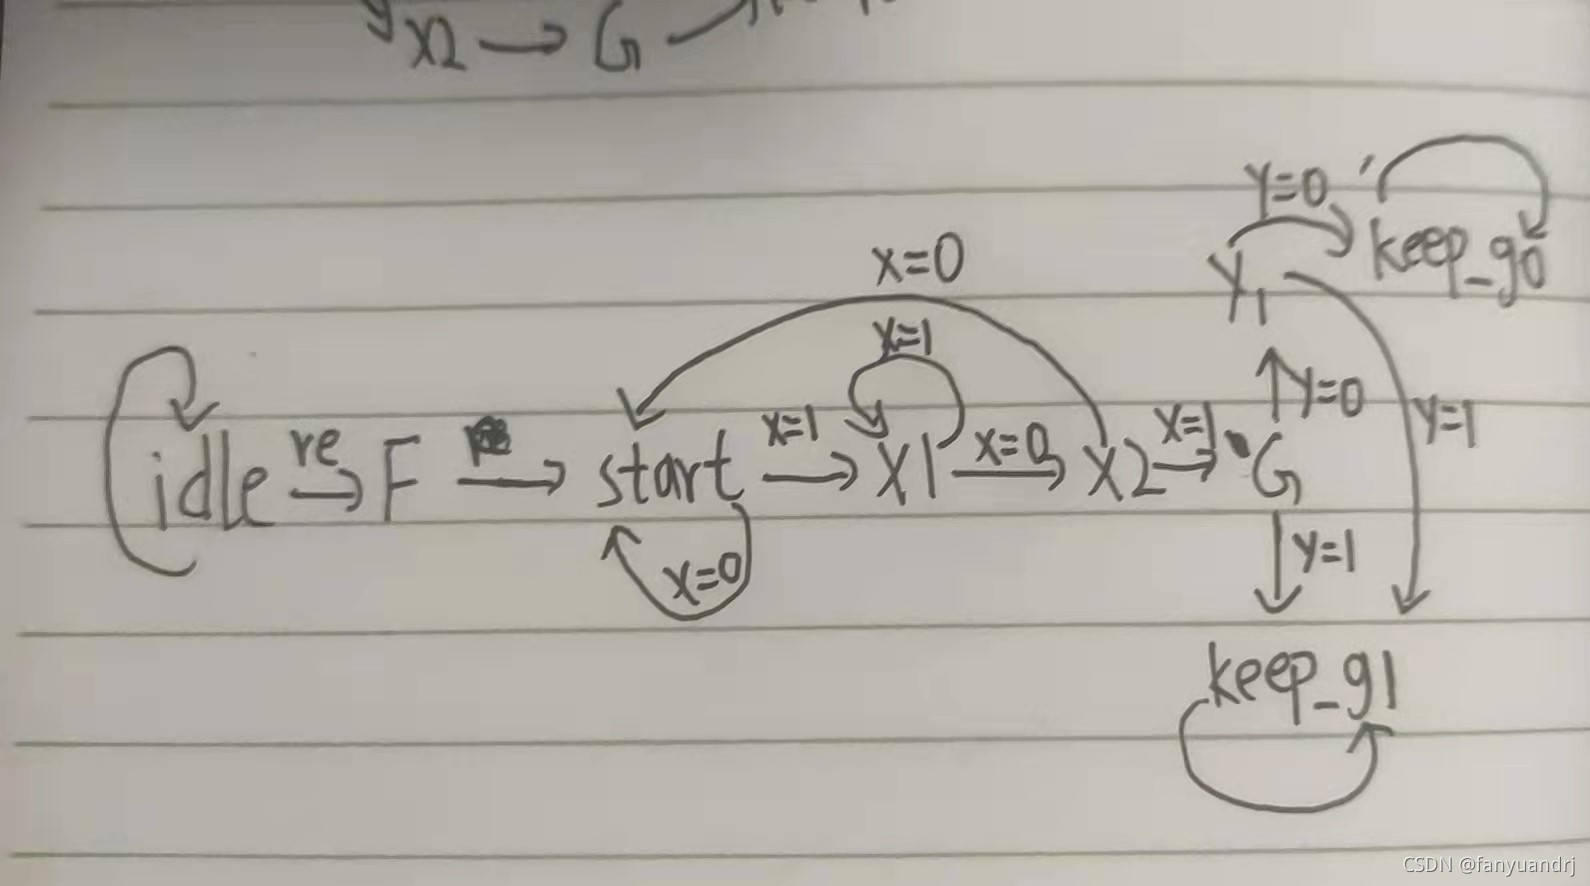 X2 → G
Y=0
keep_g0
x=0
Y1
x=1
Y=0
Y=1
idle re → F → start x=1 → X1 x=0 → X2 x=1 → G
x=0
Y=1
keep_g1
CSDN @fanyuandrj